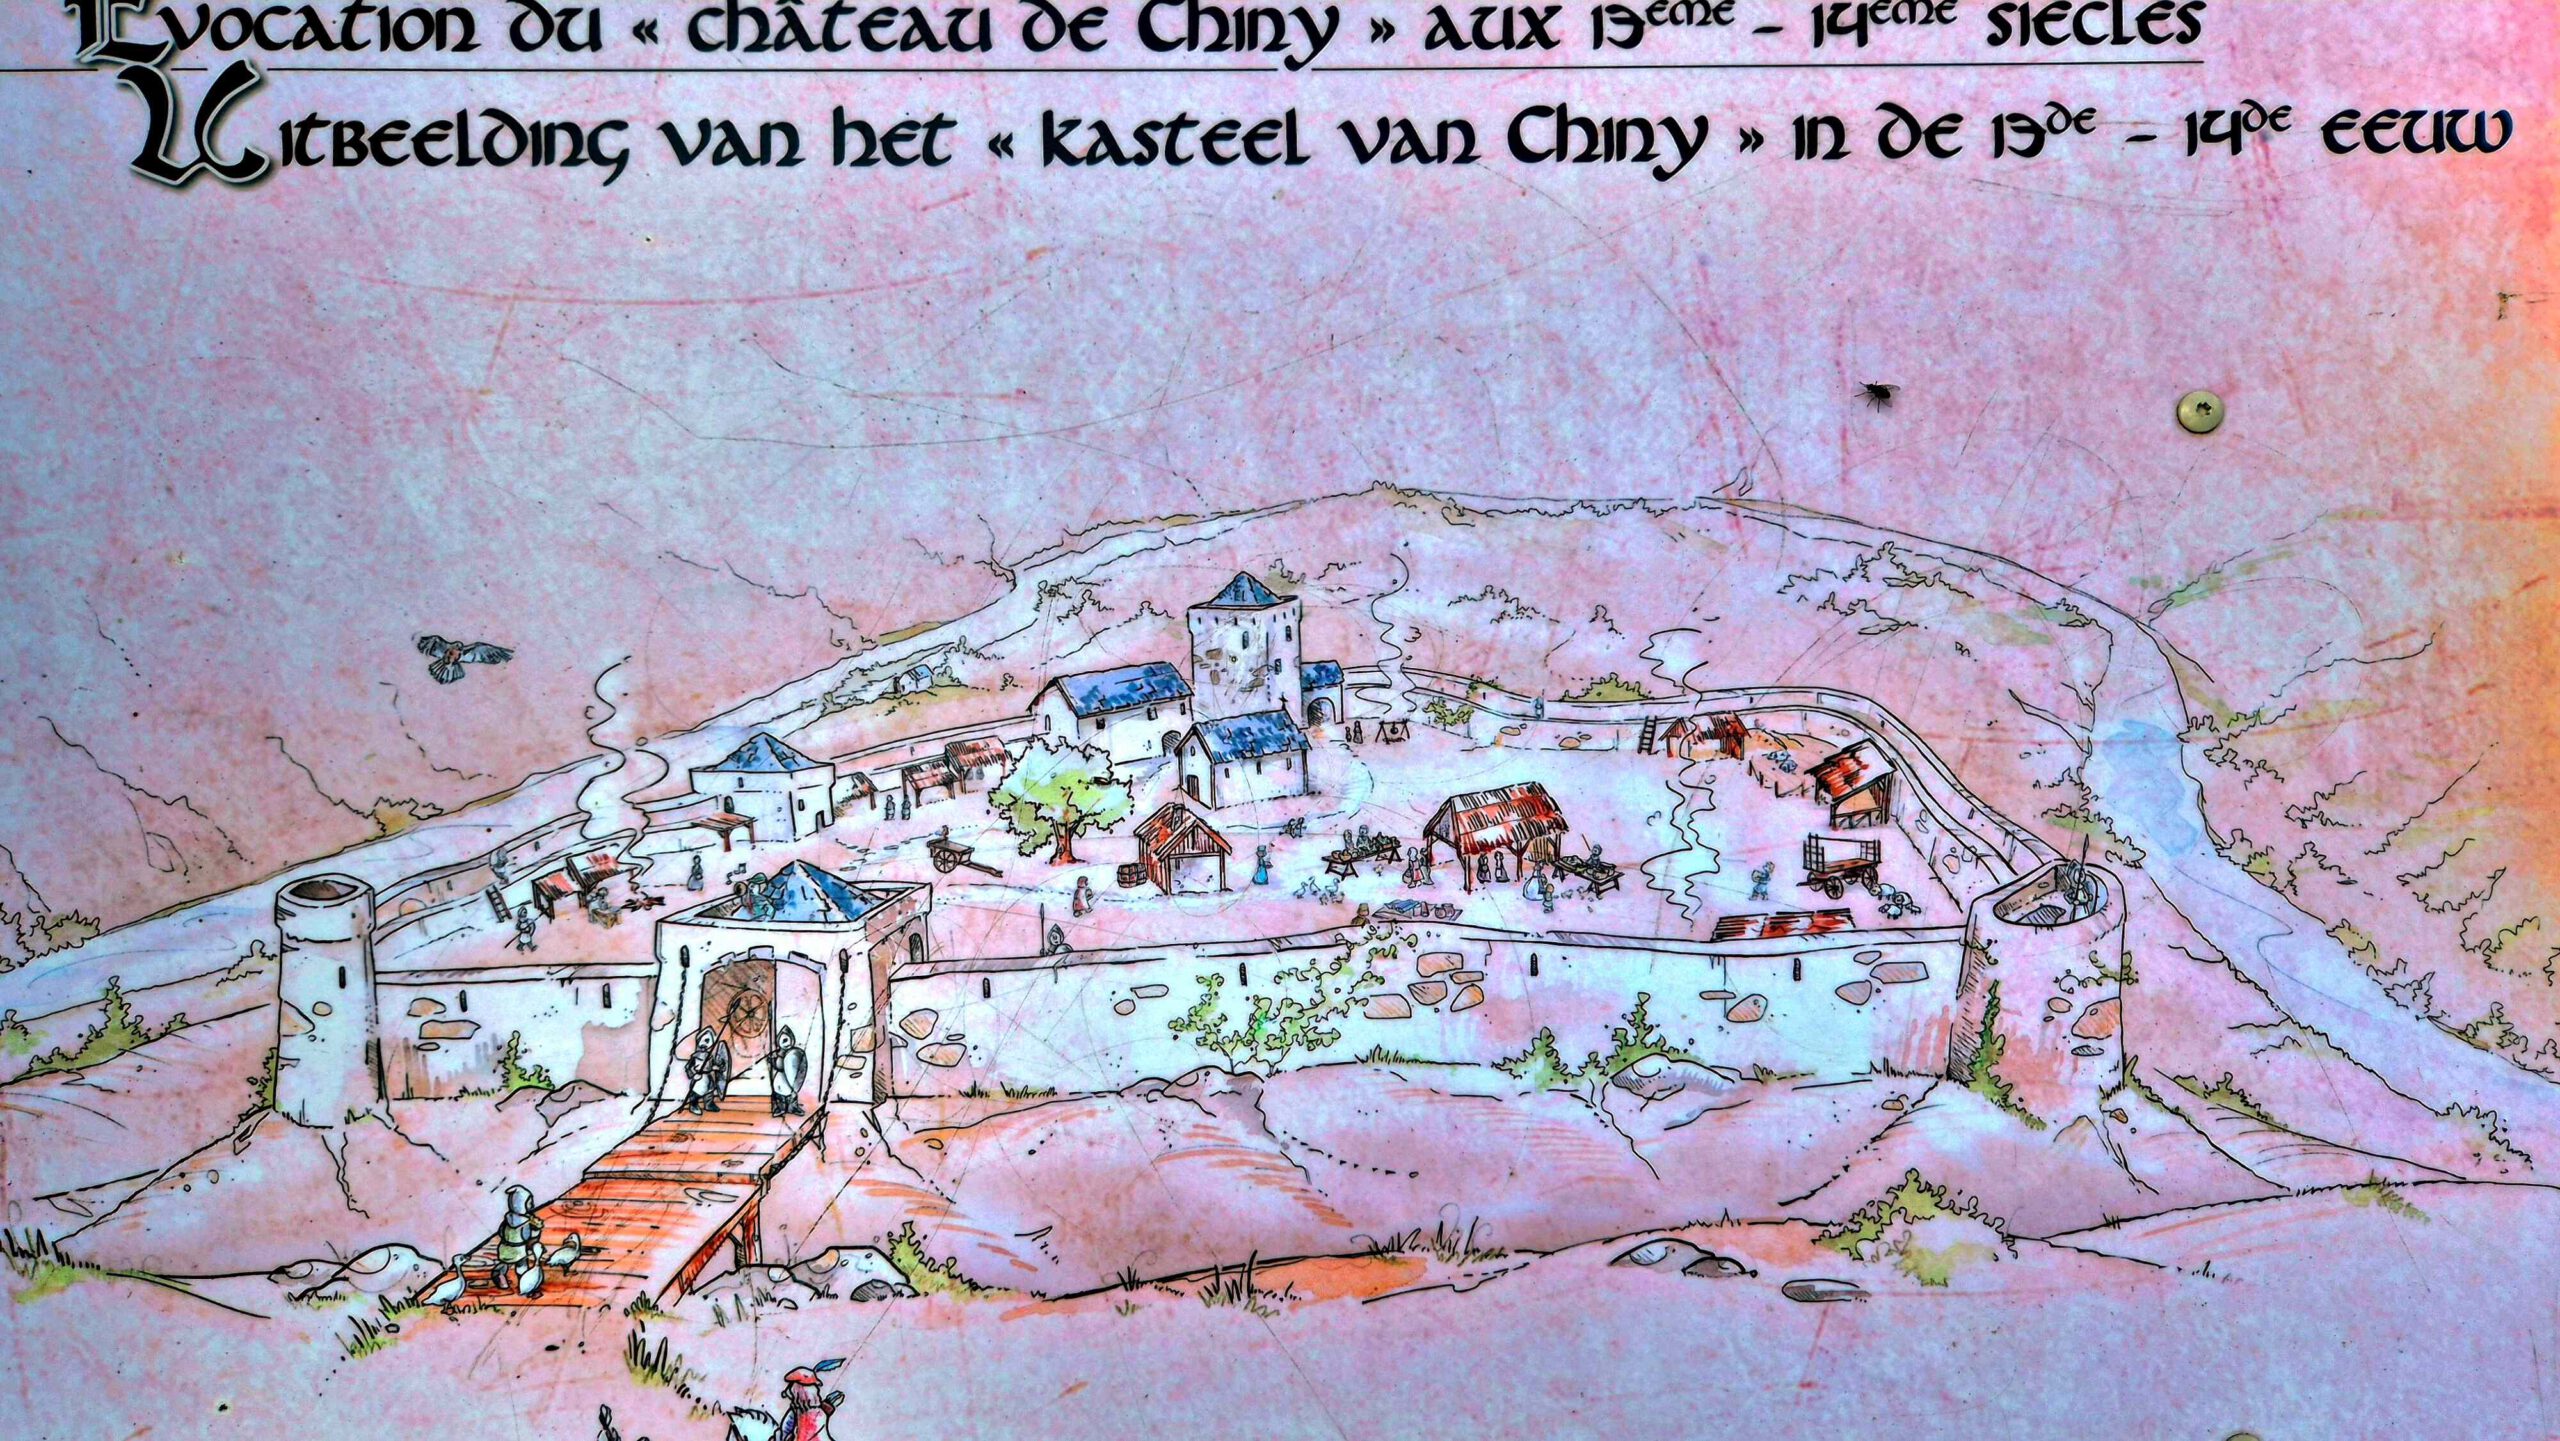 Evocation du « château de Chiny » aux 13ème - 14ème siècles
Uitbeelding van het « kasteel van Chiny » in de 13de - 14de eeuw